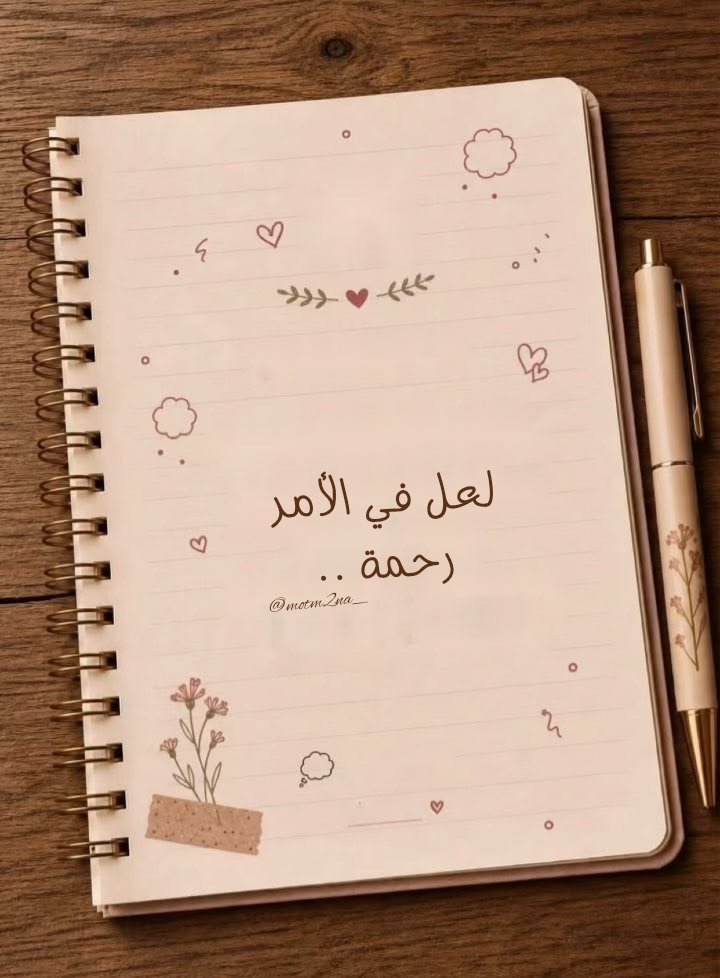 لعل في الأمر
رحمة ..
@motm2na_